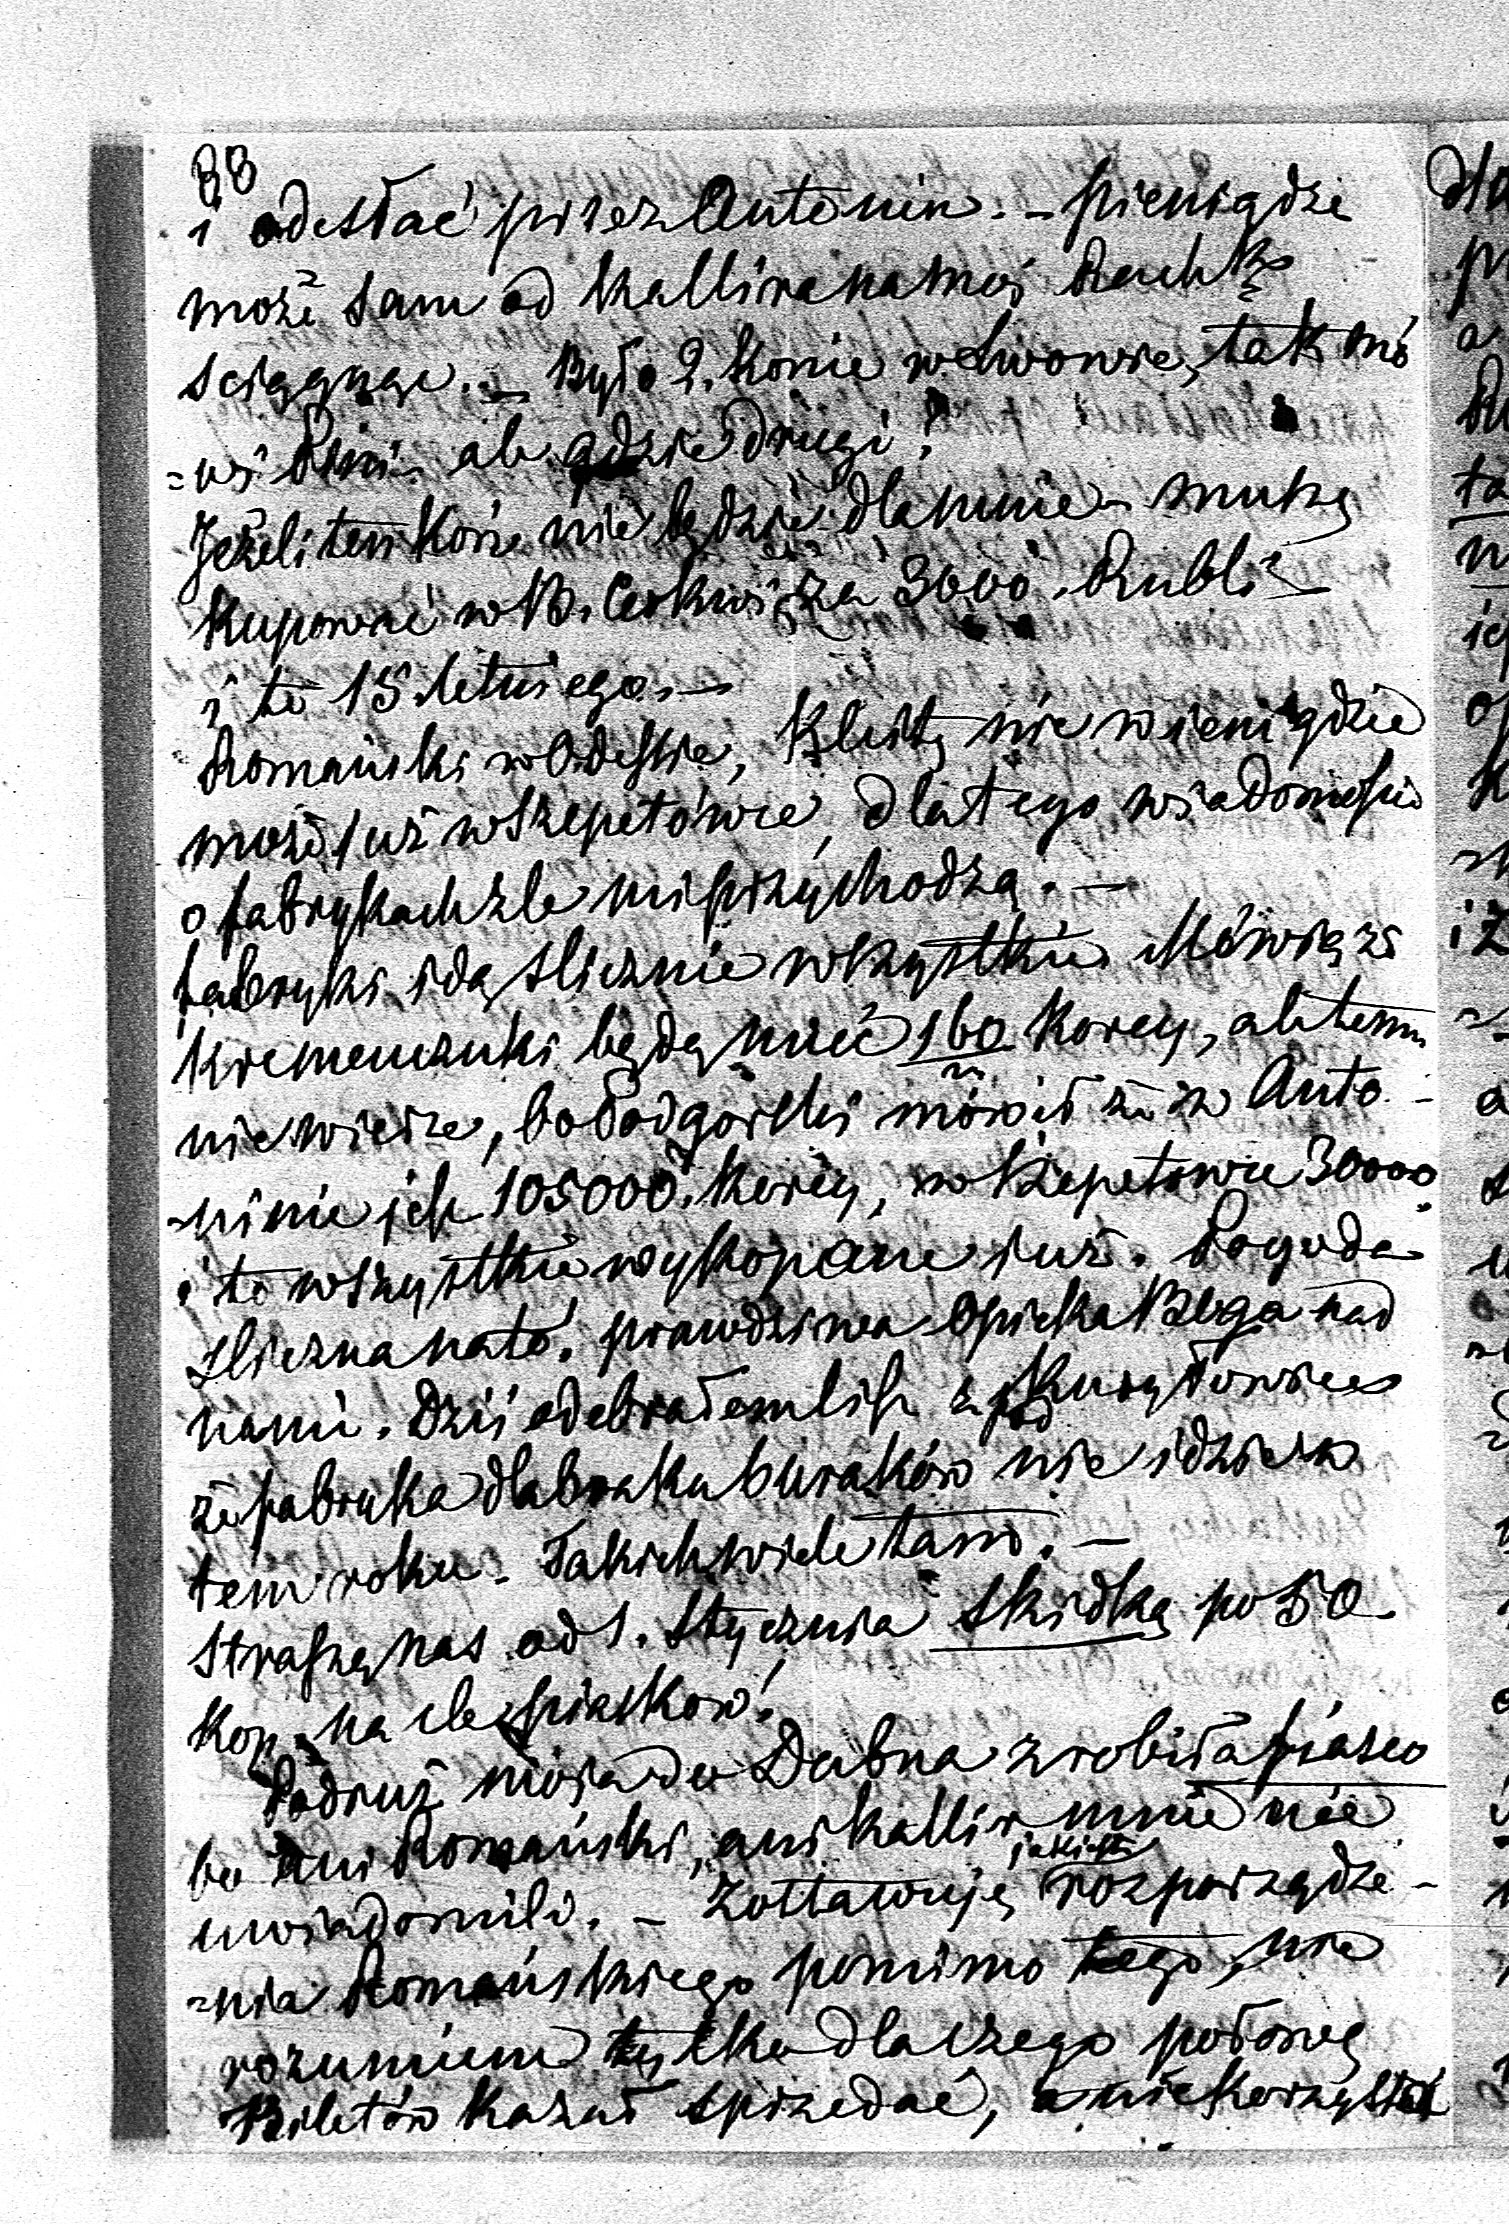 88
i odesłać przez Antonin. – pieniądze
może sam od Kallira na mój Rachk
ściągnąć. – Było 2. konie w Lwowie, tak mó
=wi Pini – ale gdzie drugi?
Jeżeli ten koń nie będzie dla mnie – muszę
kupować w B. Cerkwi za 3000 Rubli –
i to 15 letniego. –
Romański w Odessie, Klitę nie wiem gdzie
może już w Szepetówce, dlatego wiadomości
o fabrykach źle mi przychodzą. –
fabryki idą ślicznie wszystkie. Mówią że
Kremenczuki będą mieć 160 korcy, ale temu
nie wierzę, bo Podgórski mówił że w Anto-
-ninie jch 105000 korcy, w Szepetowce 30000
i to wszystkie wykopane już. Pogoda
śliczna na to. prawdziwa Opieka Boga nad
nami. Dziś odebrałem list z pod Kuryłowiec
że fabryka dla braku buraków nie idzie w
tem roku – Takich wiele tam. –
Straszą nas od 1. Stycznia skidką po 50
kop. na cle piasków!
Podruż moja do Dubna zrobiła fiasco
bo ani Romański, ani Kallir mnie nie
uwiadomili. – Zostawuję jakieś rozporządze-
-nia Romańskiego pomimo tego, nie
rozumiem tylko dlaczego połowę
Biletów kazał sprzedać, a nie korzystać